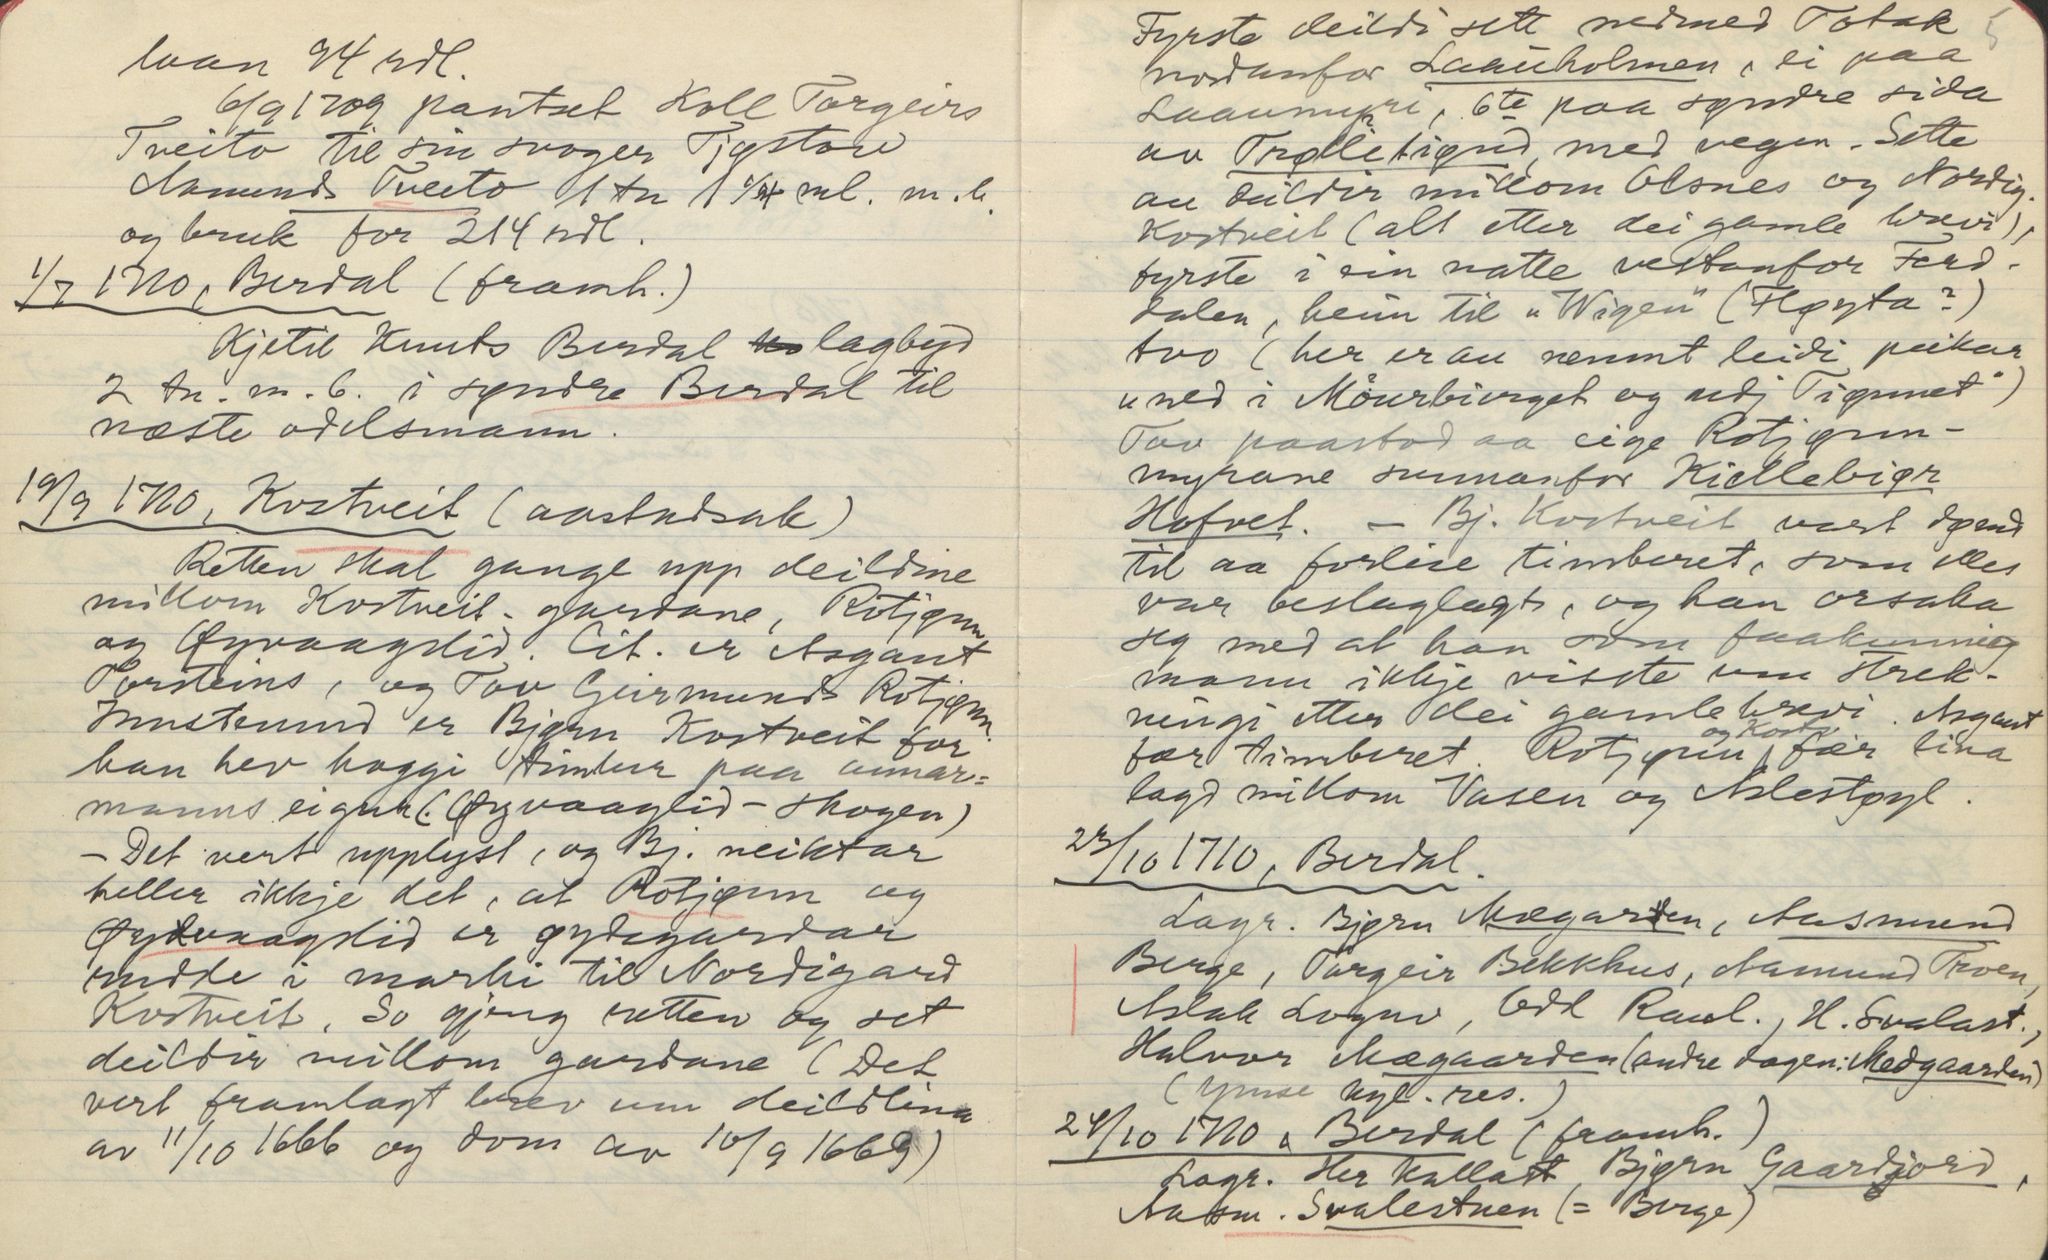 laan 94 rdl.
6/9 1709 pantset Koll Torgeirs
Tveito til sin svoger Tjøstov
Aamunds Tveito 1 tn 1 1/4 ml. m.b.
og bruk for 214 rdl.
1/7 1710, Berdal (framh.)
Kjetil Knuts Berdal lagbyd
2 tn. m. b. i syndre Berdal til
næste odelsmann.
19/9 1710, Kostveit (aastadsak)
Retten skal gange upp deildine
millom Kostveit-gardane, Rotjønn
og Øyvaagslid. Cit. er Asgaut
Torsteins, og Tov Geirmunds Rotjønn.
Innstemnd er Bjørn Kostveit for
han hev hoggi timber paa annar-
manns eigur (Øyvaaglid-skogen)
- Det vert upplyst, og Bj. neiktar
heller ikkje det, at Rotjønn og
Øydvaagslid er øydegardar
rudde i marki til Nordigard
Kostveit. So gjeng retten og set
deildir millom gardane (Det
vert framlagt brev um deildlina
av 11/10 1666 og dom av 10/9 1669)
5
Fyrste deildi sett nedmed Totak
nordanfor Laauholmen, ei paa
Laaumyri, 6te paa syndre sida
av Trolletiønd, med vegen. Sette
au deildir millom Olsnes og Nordig.
Kostveit (alt etter dei gamle brevi),
fyrste i ein natle vestanfor Ferd-
dalen, heim til "Wigen" (Fløyta?)
tvo (her er au nemnt leidi peikar
"ned i Mourbierget og udj Tiønnet")
Tov paastod aa eige Rotjønn-
myrane sunnanfor Kiellebiør
Hofvet. - Bj. Kostveit vart dømd
til aa forlise timberet, som elles
var beslaglagt, og han orsaka
seg med at han som faakunnig
mann ikkje visste um strek-
ningi etter dei gamle brevi. Asgaut
fær timberet. Rotjønn og Kostv. fær lina
lagd millom Vasen og Aslestøyl.
23/10 1710, Berdal.
Lagr. Bjørn Mægarden, Aasmund
Berge, Torgeir Bekkhus, Aamund Troen,
Aslak Loguv, Odd Raul., H. Svalast.,
Halvor Mægaarden (andre dagen: Medgaarden)
(ymse kgl. res.)
24/10 1710, Berdal (framh.)
Lagr. Her kallast Bjørn Gaardjord,
Aasm. Svalestuen (= Berge)